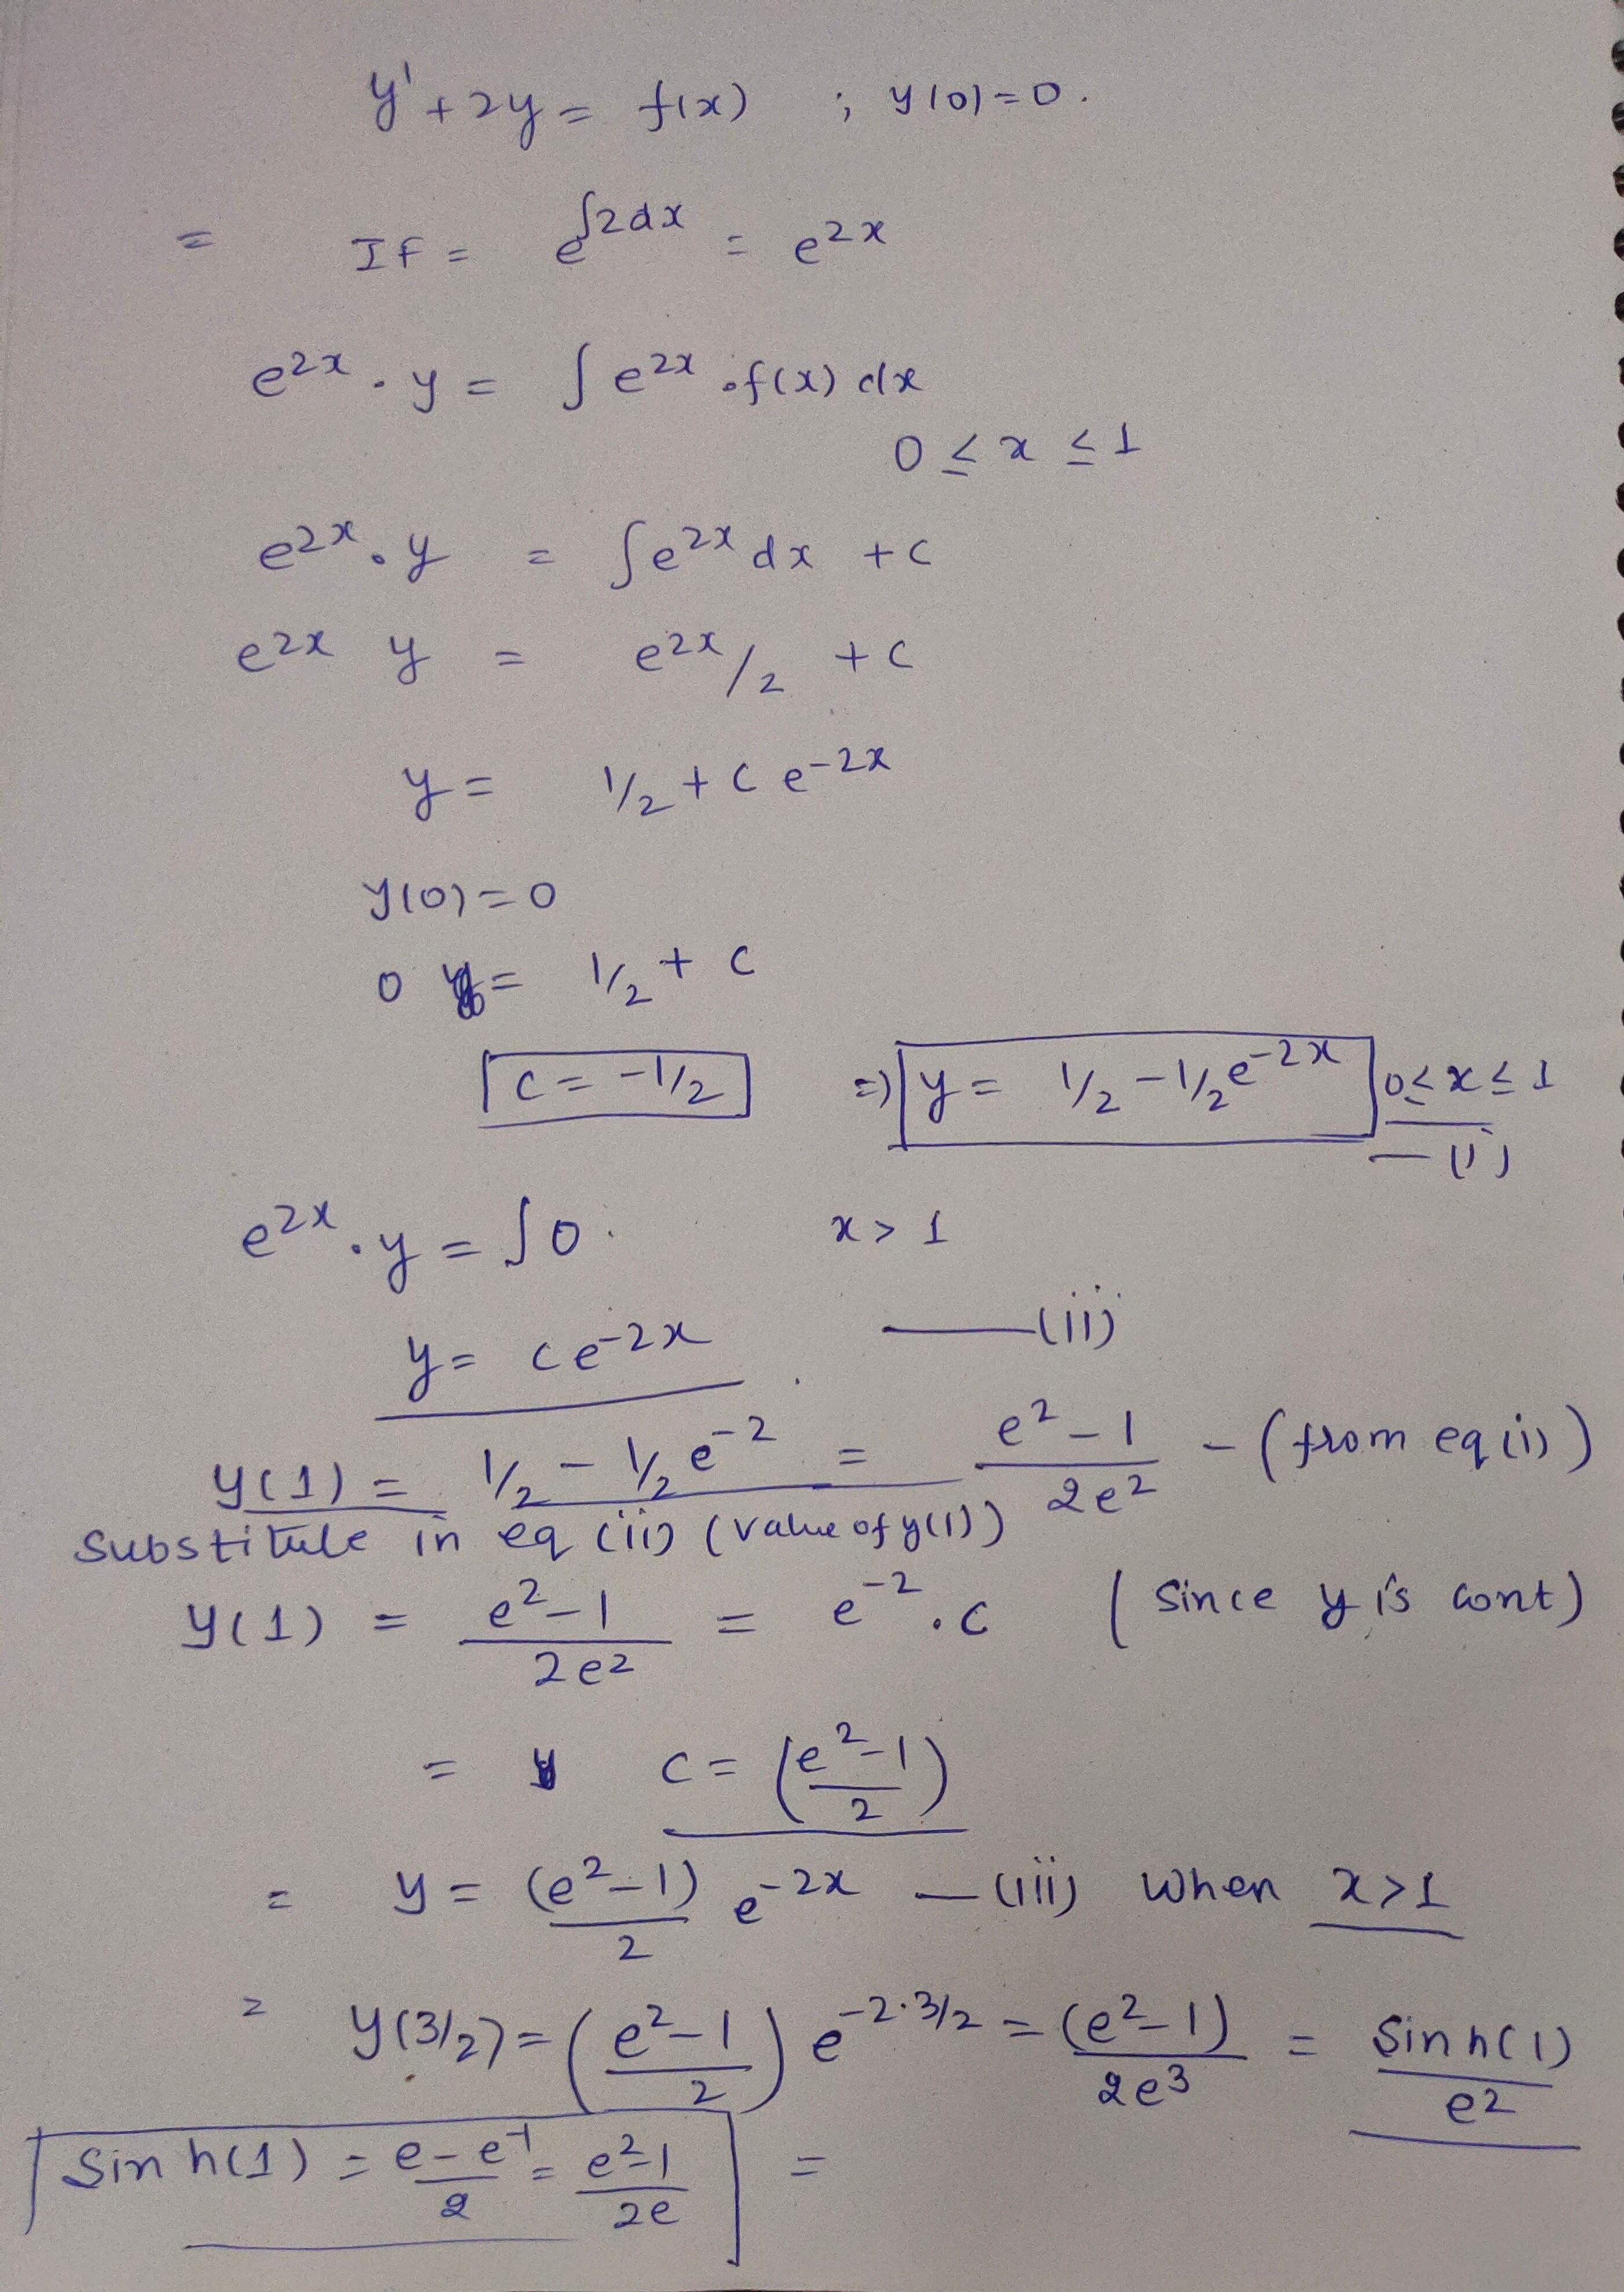 y' + 2y = f(x) ; y(0) = 0.
= IF = e^∫2dx = e^2x
e^2x . y = ∫e^2x .f(x) dx
0 ≤ x ≤ 1
e^2x . y = ∫e^2x dx + c
e^2x y = e^2x/2 + c
y = 1/2 + c e^-2x
y(0) = 0
0 = 1/2 + c
c = -1/2 => y = 1/2 - 1/2 e^-2x 0 ≤ x ≤ 1
— (i)
e^2x . y = ∫0. x > 1
y = ce^-2x. — (ii)
y(1) = 1/2 - 1/2 e^-2 = (e^2 - 1)/(2e^2) - (from eq (i))
Substitute in eq (ii) (value of y(1))
y(1) = (e^2 - 1)/(2e^2) = e^-2 . c (Since y is cont)
= c = ((e^2 - 1)/2)
= y = (e^2 - 1)/2 e^-2x — (iii) when x > 1
= y(3/2) = ((e^2 - 1)/2) e^-2·3/2 = (e^2 - 1)/(2e^3) = Sinh(1)/e^2
Sinh(1) = (e - e^-1)/2 = (e^2 - 1)/(2e) =